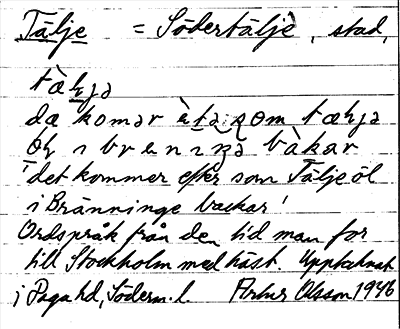 Tälje = Södertälje, stad,
tæ̀lja
dæ komər ètə som tælja
øl ı brenıŋə bàkar
'det kommer efter som Tälje öl
i Bränninge backar'
Ordspråk från den tid man for
till Stockholm med häst. Upptecknat
i Paga hd, Söderm. l. Artur Olsson 1946